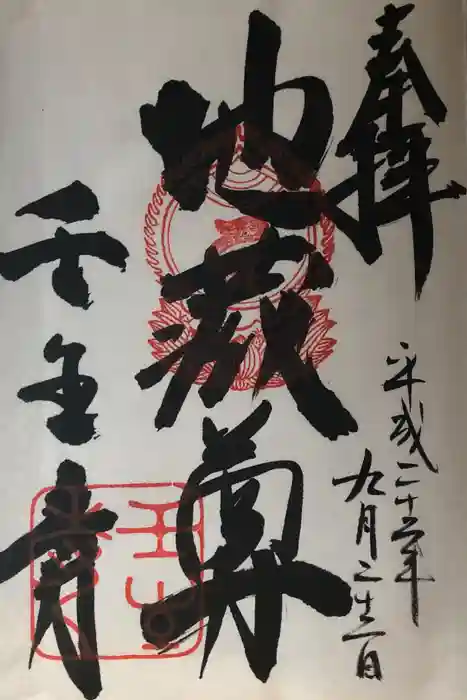 奉拝
平成二十六年
九月二十一日
地蔵尊
壬生寺